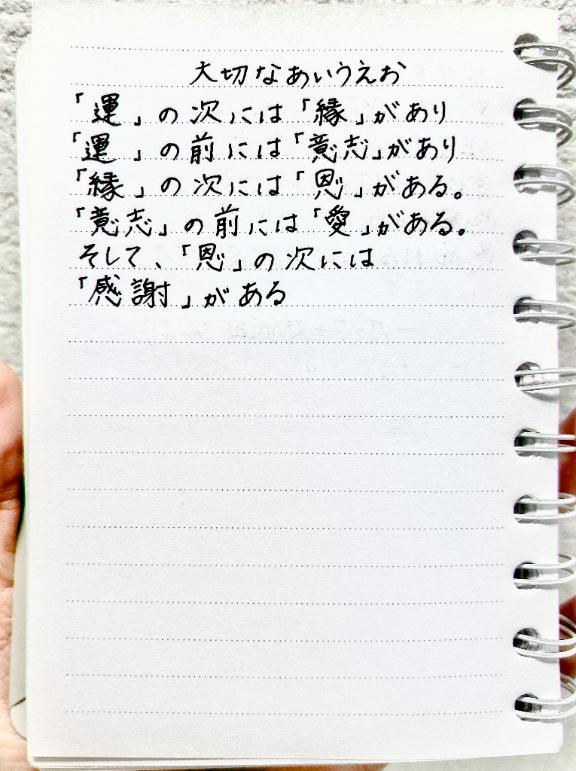 大切なあいうえお
「運」の次には「縁」があり
「運」の前には「意志」があり
「縁」の次には「恩」がある。
「意志」の前には「愛」がある。
そして、「恩」の次には
「感謝」がある